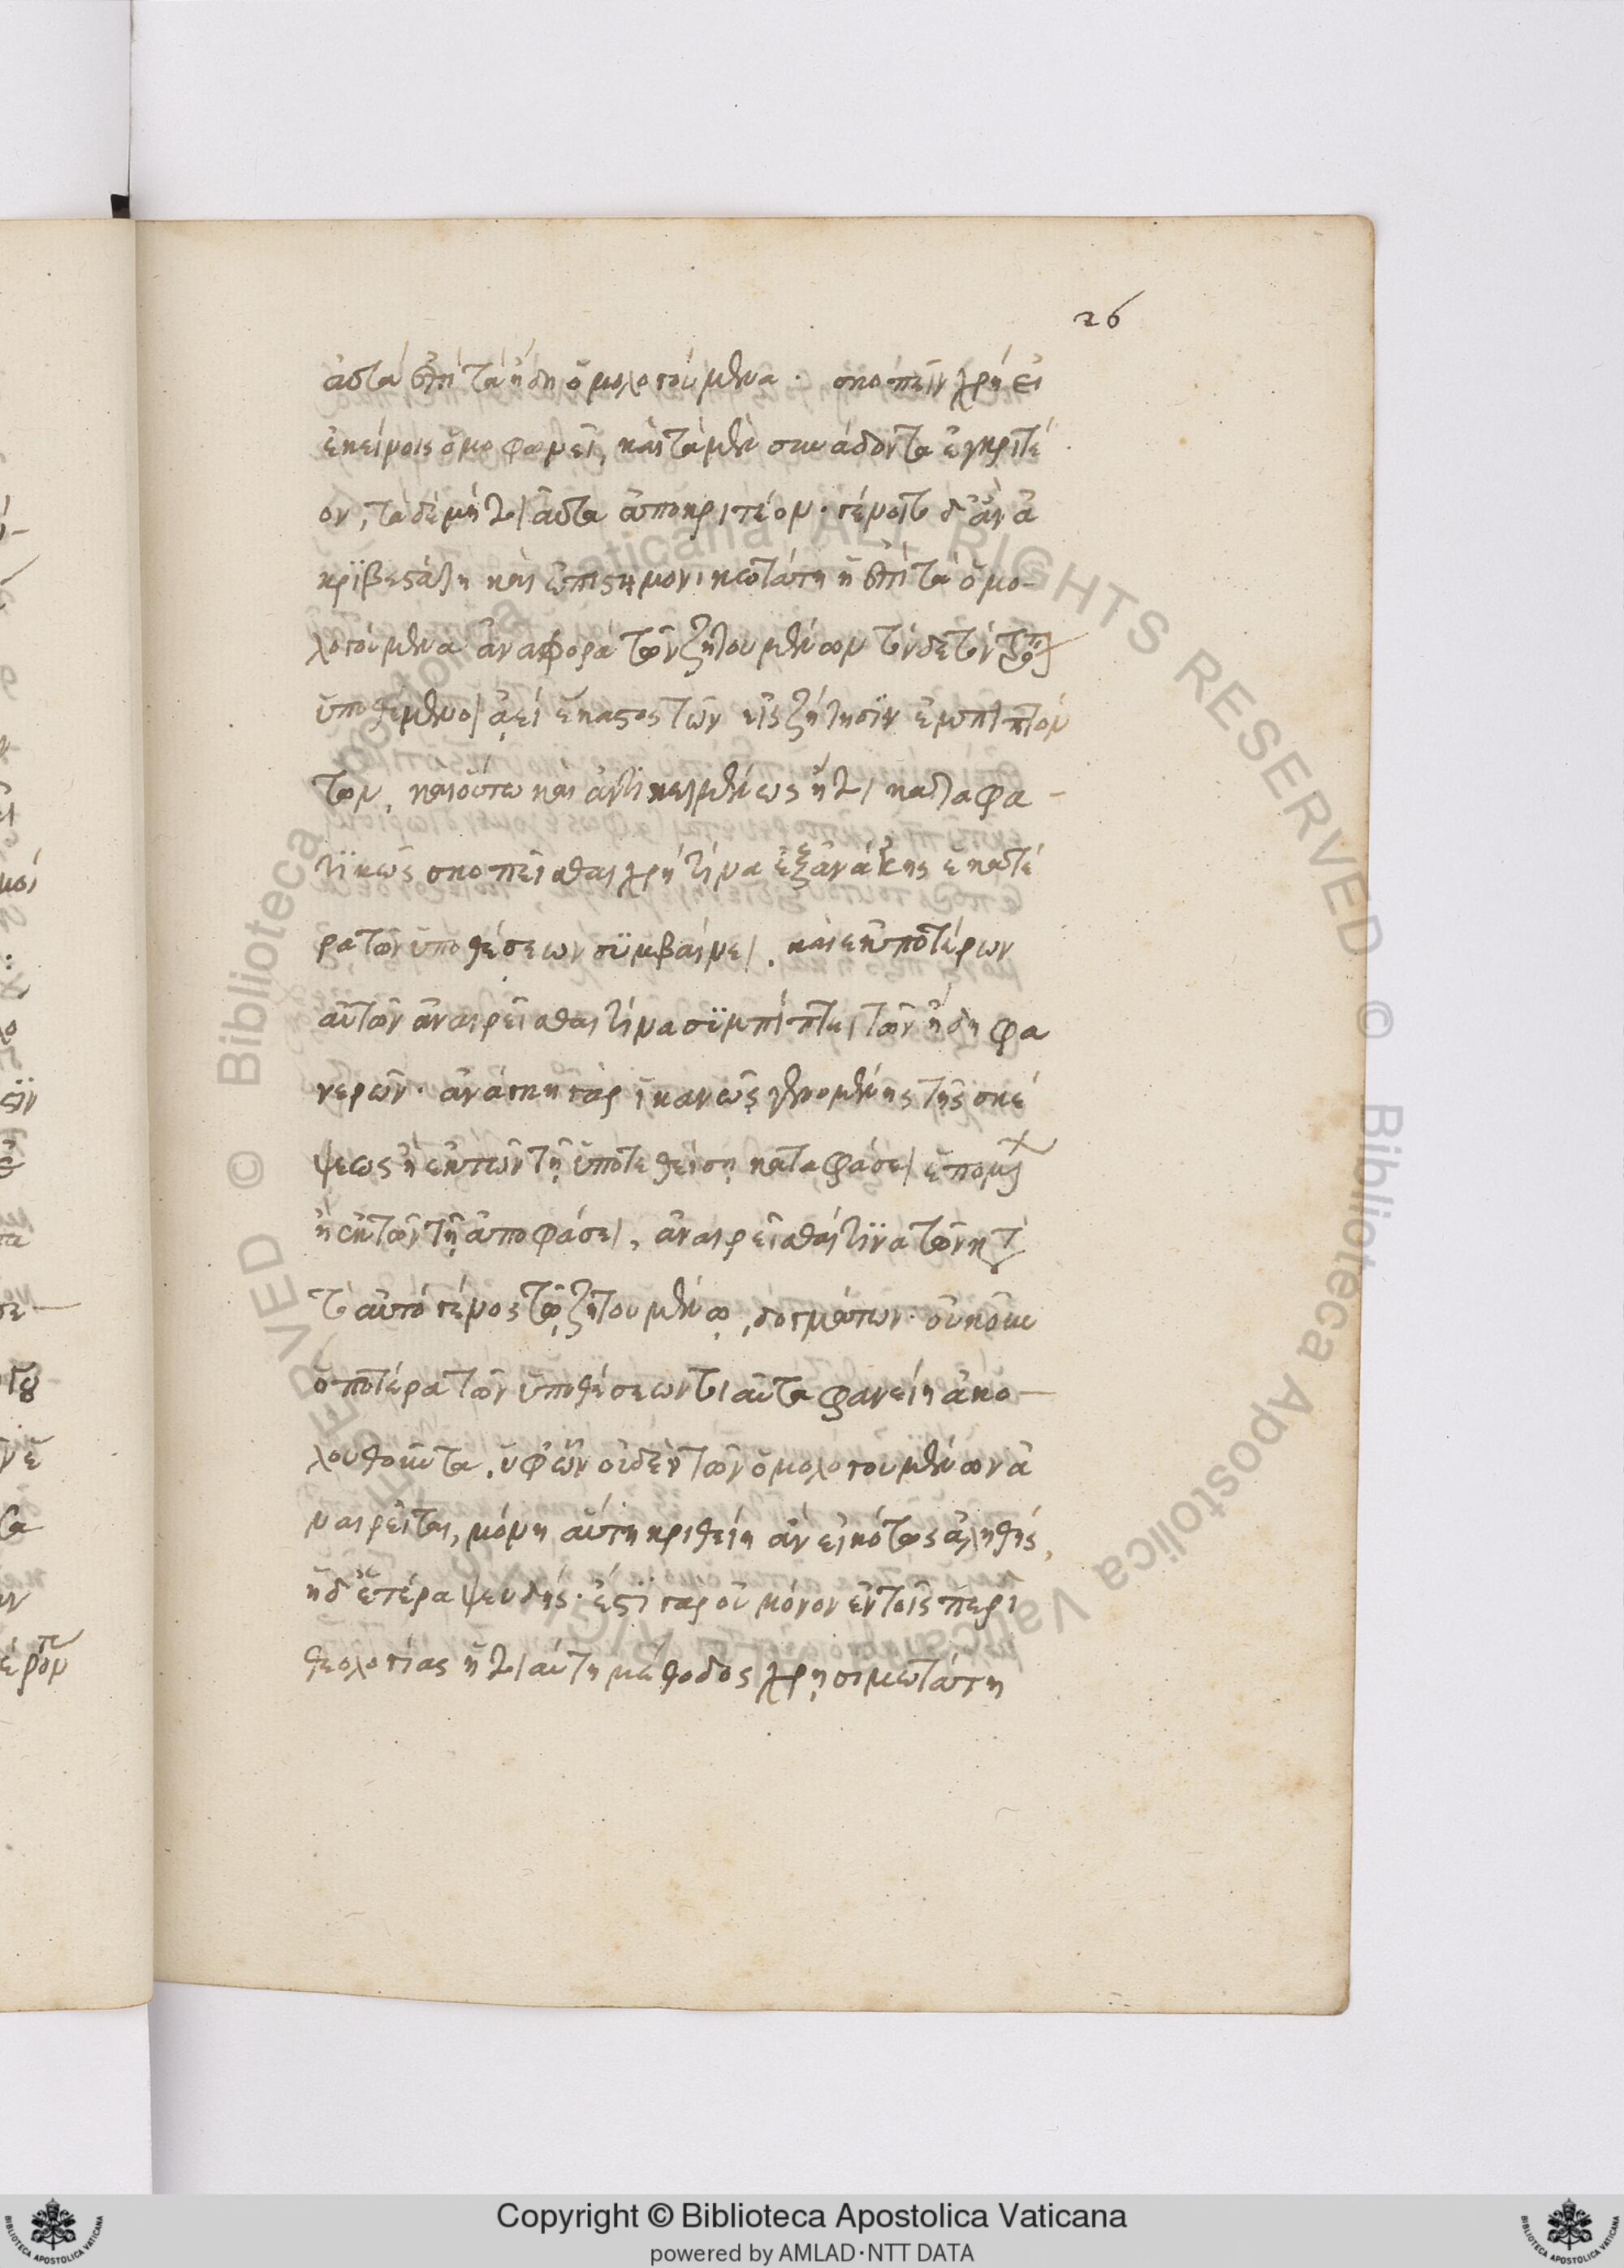 26
αστα ἐπὶ τὰ ἤδη ὁμολογούμενα. σκοπεῖν χρὴ εἰ
ἐκείνοις ὁμοφωνεῖ, καὶ τὰ μὲν συνάδοντα ἐγκριτέ
ον, τὰ δὲ μὴ τοιαῦτα ἀποκριτέον. γένοιτο δ' ἂν ἀ
κριβεστάτη καὶ ἐπιστημονικωτάτη ἡ ἐπὶ τὰ ὁμο-
λογούμενα ἀναφορὰ τῶν ζητουμένων τόνδε τὸν τρόπον
ὑποθέμενοι ἀεὶ ἕκαστος τῶν εἰς ζήτησιν ἐμπιπτόν
των, καὶ οὕτω καὶ ἀντικειμένως ἤτοι καταφα-
τικῶς σκοπεῖσθαι χρὴ τίνα ἐξ ἀνάγκης ἑκατέ
ρα τῶν ὑποθέσεων συμβαίνει, καὶ ἐκ ποτέρων
αὐτῶν ἀναιρεῖσθαι τίνα συμπίπτει τῶν ἤδη φα
νερῶν. ἀνάγκη γὰρ ἱκανῶς γενομένης τῆς σκέ
ψεως ἢ ἐκ τῶν τῇ ὑποτεθείσῃ καταφάσει ἑπομένων
ἢ ἐκ τῶν τῇ ἀποφάσει, ἀναιρεῖσθαί τινα τῶν κατὰ
τὸ αὐτὸ γένος τῷ ζητουμένῳ, δογμάτων. οὐκοῦν
ὁποτέρα τῶν ὑποθέσεων τοιαῦτα φανείη ἀκο-
λουθοῦντα, ὑφ' ὧν οὐδὲν τῶν ὁμολογουμένων ἀ
ναιρεῖται, μόνη αὕτη κριθείη ἂν εἰκότως ἀληθής,
ἡ δ' ἑτέρα ψευδής. ἔστι γὰρ οὐ μόνον ἐν τοῖς περὶ
θεολογίας ἡ τοιαύτη μέθοδος χρησιμωτάτη
Copyright © Biblioteca Apostolica Vaticana
powered by AMLAD·NTT DATA